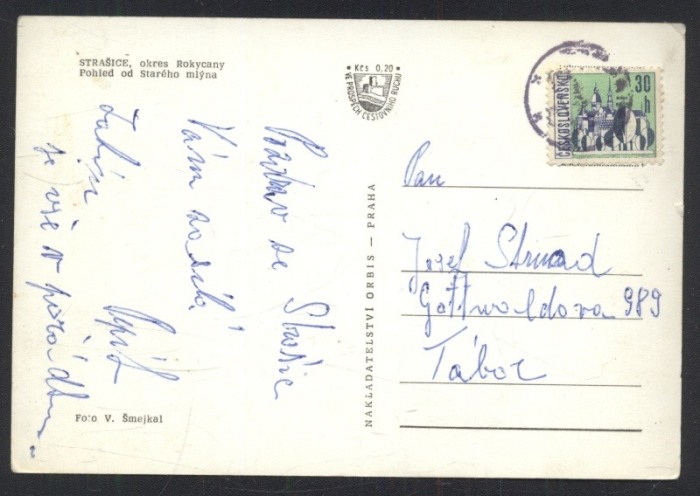 STRAŠICE, okres Rokycany
Pohled od Starého mlýna
Kčs 0,20
VE PROSPĚCH CESTOVNÍHO RUCHU
ČESKOSLOVENSKO
30 h
Pozdrav ze Strašic
Vám zasílá
je vše v pořádku.
NAKLADATELSTVÍ ORBIS — PRAHA
Pan
Josef Strnad
Gottwaldova 989
Tábor
Foto V. Šmejkal